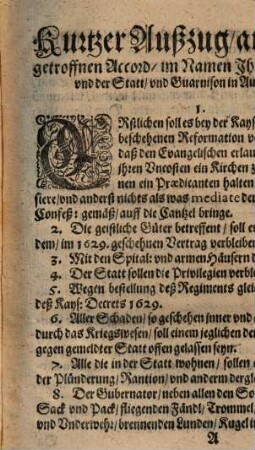 Kurtzer Außzug/ au
getroffnen Accord/ im Namen Jh
vnd der Statt/ vnd Guarnison in Au
1.
ERstlichen soll es bey der Kays
beschehenen Reformation v
daß den Evangelischen erlau
ihren Vncosten ein Kirchen z
nen ein Prædicanten halten
siere/ vnd anderst nichts als was mediate der
Confeß: gemäß/ auff die Cantzel bringe.
2. Die geistliche Güter betreffent / soll e
dem/ im 1629. geschehnen Vertrag verbleiben
3. Mit den Spital: vnd armen Häusern d
4. Der Statt sollen die Privilegien verble
5. Wegen bestellung deß Regiments glei
deß Kays: Decrets 1629.
6. Aller Schaden/ so geschehen inner vnd e
durch das Kriegswesen/ soll einem jeglichen der
gegen gemeldter Statt offen gelassen seyn.
7. Alle die in der Statt wohnen / sollen e
der Plünderung/ Rantion/ vnd anderm dergle
8. Der Gubernator/ neben allen den So
Sack vnd Pack/ fliegenden Fändl/ Trommel,
vnd Vnderwehr/ brennenden Lunden/ Kugel in
A